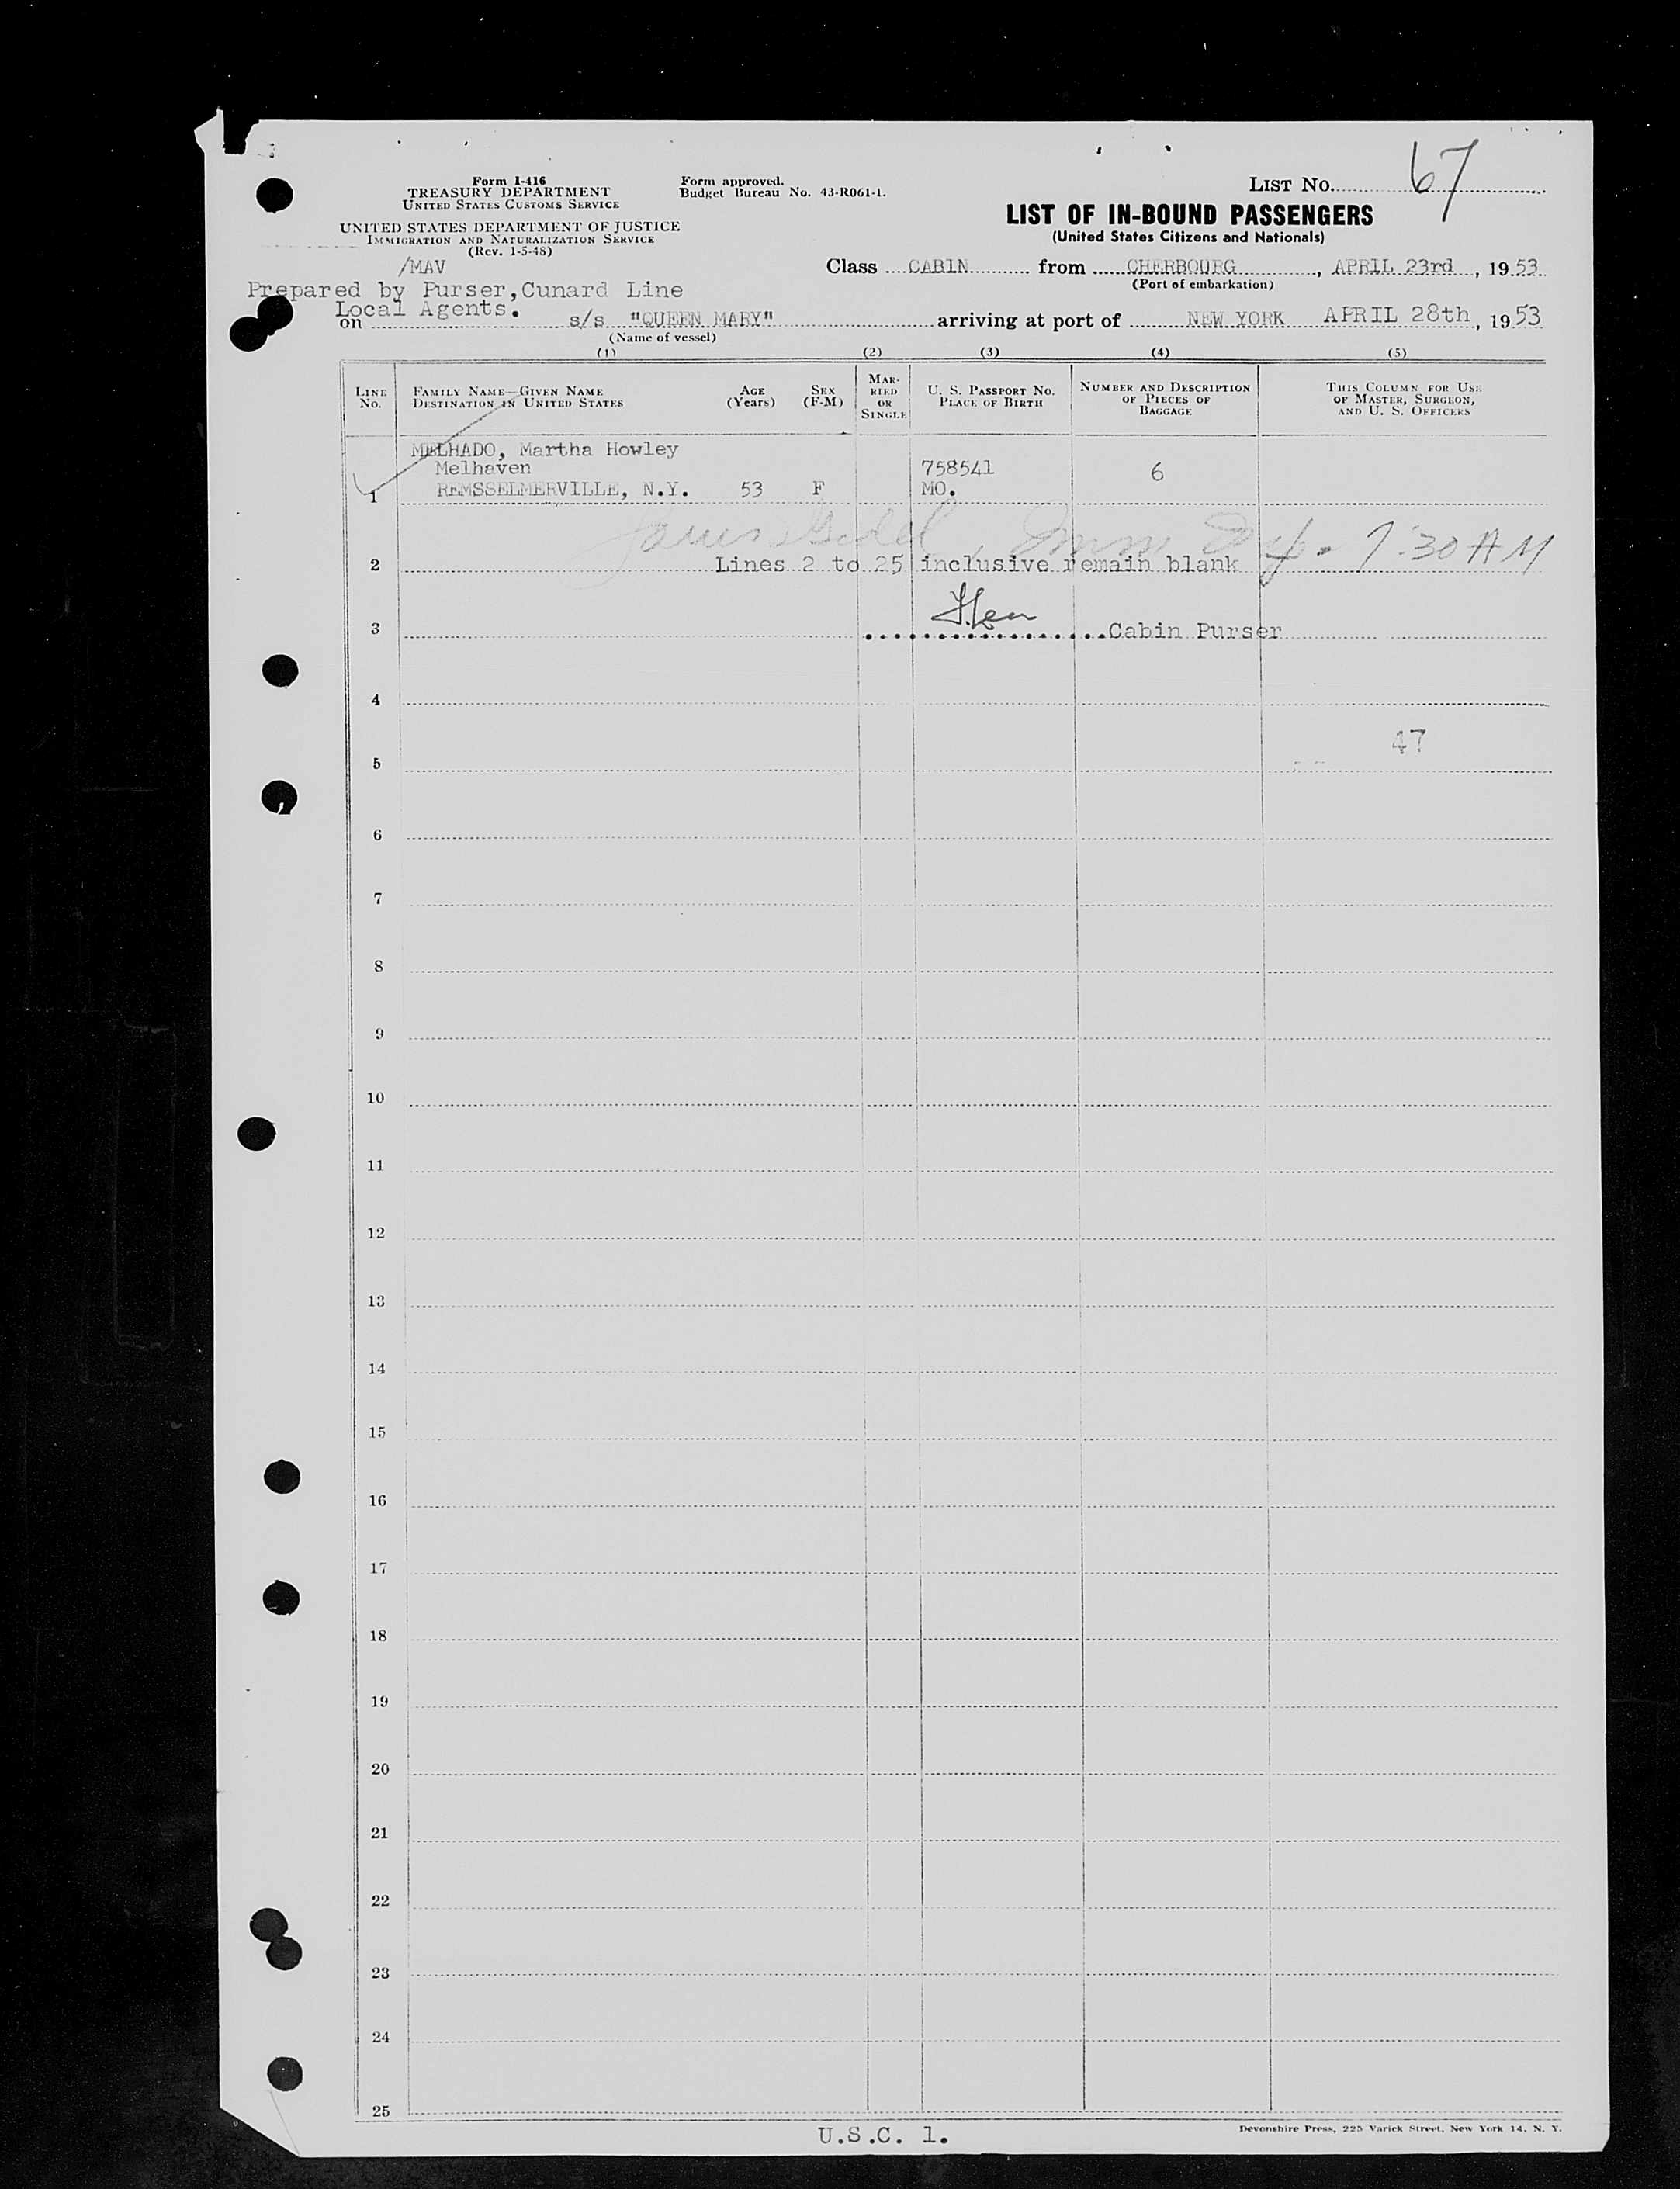 LIST No. 67
Form I-416
TREASURY DEPARTMENT
UNITED STATES CUSTOMS SERVICE
Form approved.
Budget Bureau No. 43-R061-1.
UNITED STATES DEPARTMENT OF JUSTICE
IMMIGRATION AND NATURALIZATION SERVICE
(Rev. 1-5-48)
LIST OF IN-BOUND PASSENGERS
(United States Citizens and Nationals)
/MAV
Class CABIN from CHERBOURG, APRIL 23rd, 1953
(Port of embarkation)
Prepared by Purser, Cunard Line
Local Agents.
on s/s "QUEEN MARY" arriving at port of NEW YORK APRIL 28th, 1953
(Name of vessel)
(1) (2) (3) (4) (5)
LINE No.
FAMILY NAME—GIVEN NAME
DESTINATION IN UNITED STATES
AGE (Years)
SEX (F-M)
MAR-
RIED
OR
SINGLE
U. S. PASSPORT NO.
PLACE OF BIRTH
NUMBER AND DESCRIPTION
OF PIECES OF
BAGGAGE
THIS COLUMN FOR USE
OF MASTER, SURGEON,
AND U. S. OFFICERS
MELHADO, Martha Howley
Melhaven 758541 6
1 REMSSELMERVILLE, N.Y. 53 F MO.
7:30 AM
2 Lines 2 to 25 inclusive remain blank
3 Cabin Purser
4
47
5
6
7
8
9
10
11
12
13
14
15
16
17
18
19
20
21
22
23
24
25
U.S.C. 1.
Devonshire Press, 225 Varick Street, New York 14, N. Y.